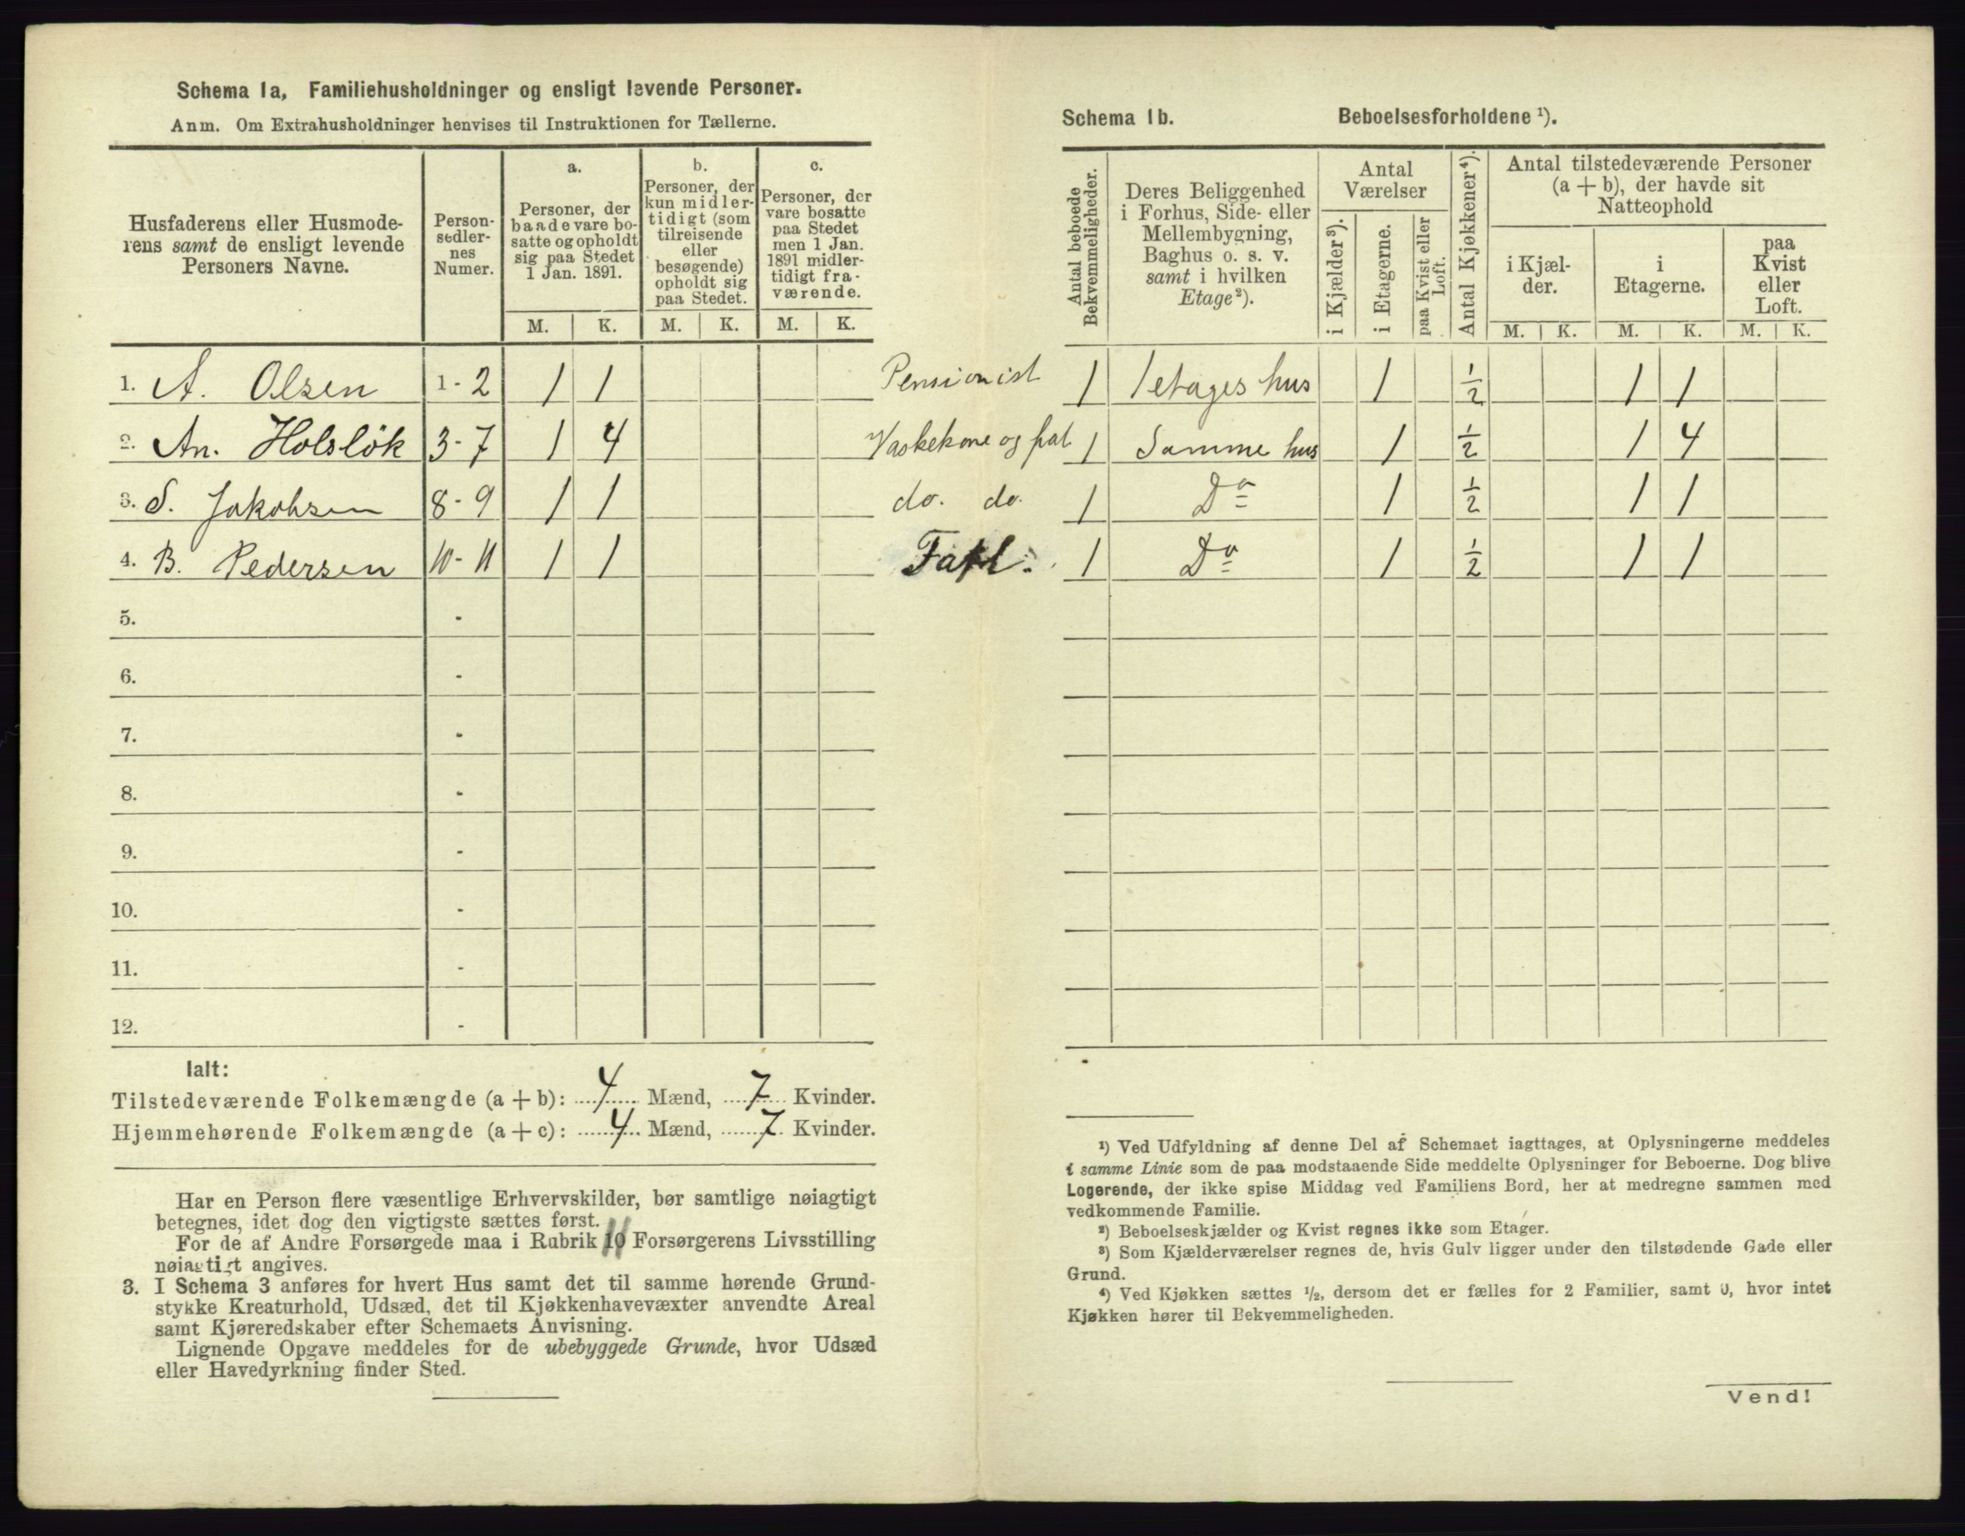 Schema 1a, Familiehusholdninger og ensligt levende Personer.
Anm. Om Extrahusholdninger henvises til Instruktionen for Tællerne.
Husfaderens eller Husmoderens samt de ensligt levende Personers Navne.
Personsedlernes Numer.
a. Personer, der baade vare bosatte og opholdt sig paa Stedet 1 Jan. 1891.
b. Personer, der kun midlertidigt (som tilreisende eller besøgende) opholdt sig paa Stedet.
c. Personer, der vare bosatte paa Stedet men 1 Jan. 1891 midlertidigt fraværende.
M. K. M. K. M. K.
1. A. Olsen 1-2 1 1 Pensionist
2. An. Holsløk 3-7 1 4 Vaskekone og fat
3. S. Jakobsen 8-9 1 1 do. do.
4. B. Pedersen 10-11 1 1 Fatt.
5. -
6. -
7. -
8. -
9. -
10. -
11. -
12. -
Ialt:
Tilstedeværende Folkemængde (a + b): 4 Mænd, 7 Kvinder.
Hjemmehørende Folkemængde (a + c): 4 Mænd, 7 Kvinder.
Har en Person flere væsentlige Erhvervskilder, bør samtlige nøiagtigt
betegnes, idet dog den vigtigste sættes først.
For de af Andre Forsørgede maa i Rubrik 11 Forsørgerens Livsstilling
nøiagtigt angives.
3. I Schema 3 anføres for hvert Hus samt det til samme hørende Grund-
stykke Kreaturhold, Udsæd, det til Kjøkkenhavevæxter anvendte Areal
samt Kjøreredskaber efter Schemaets Anvisning.
Lignende Opgave meddeles for de ubebyggede Grunde, hvor Udsæd
eller Havedyrkning finder Sted.
Schema 1b. Beboelsesforholdene ¹).
Antal beboede Bekvemmeligheder.
Deres Beliggenhed i Forhus, Side- eller Mellembygning, Baghus o. s. v. samt i hvilken Etage²).
Antal Værelser
i Kjælder³).
i Etagerne.
paa Kvist eller Loft.
Antal Kjøkkener⁴).
Antal tilstedeværende Personer (a + b), der havde sit Natteophold
i Kjælder.
i Etagerne.
paa Kvist eller Loft.
M. K. M. K. M. K.
1 1 etages hus 1 ½ 1 1
1 Samme hus 1 ½ 1 4
1 Do 1 ½ 1 1
1 Do 1 ½ 1 1
¹) Ved Udfyldning af denne Del af Schemaet iagttages, at Oplysningerne meddeles
i samme Linie som de paa modstaaende Side meddelte Oplysninger for Beboerne. Dog blive
Logerende, der ikke spise Middag ved Familiens Bord, her at medregne sammen med
vedkommende Familie.
²) Beboelseskjælder og Kvist regnes ikke som Etager.
³) Som Kjælderværelser regnes de, hvis Gulv ligger under den tilstødende Gade eller
Grund.
⁴) Ved Kjøkken sættes ½, dersom det er fælles for 2 Familier, samt 0, hvor intet
Kjøkken hører til Bekvemmeligheden.
Vend!